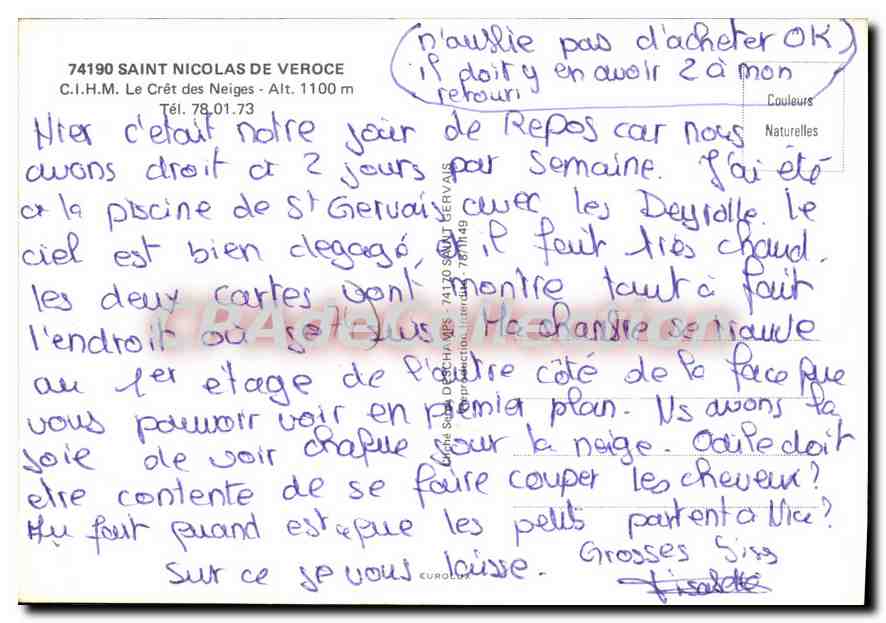 (n'aublie pas d'acheter OK)
il doit y en avoir 2 à mon
retour
74190 SAINT NICOLAS DE VEROCE
C.I.H.M. Le Crêt des Neiges - Alt. 1100 m
Tél. 78.01.73
Couleurs
Naturelles
Hier c'était notre jour de Repos car nous
avons droit a 2 jours par semaine. J'ai été
a la piscine de St Gervais avec les Deyrolle. Le
ciel est bien degagé, et il fait très chaud.
les deux cartes vont montre taut à fait
l'endroit où je suis. Ma chambre se trouve
au 1er etage de l'autre côté de la face que
vous pouvoir voir en premier plan. Ns avons la
joie de voir chaque jour la neige. Odile doit
etre contente de se faire couper les cheveux?
Au fait quand est ce que les petits partent a Nice?
Sur ce je vous laisse. Grosses Biss
EUROLUX
Cliché Serge DESCHAMPS - 74170 SAINT GERVAIS
Reproduction interdite - 78
CPAdeCollection